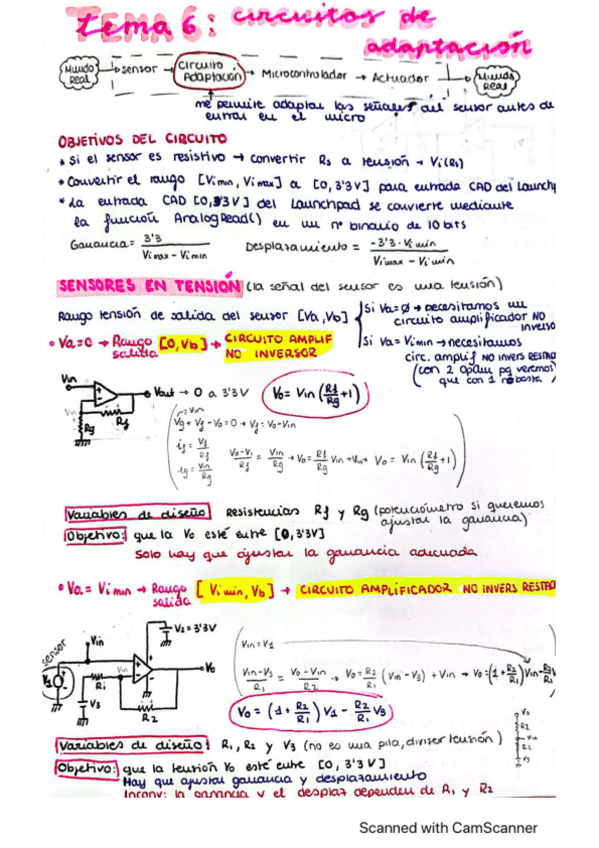 TEMA 6: circuitos de
adaptación
Mundo Real → sensor → Circuito Adaptación → Microcontrolador → Actuador → Mundo Real
me permite adaptar las señales del sensor antes de
entrar en el micro
OBJETIVOS DEL CIRCUITO
* Si el sensor es resistivo → convertir Rs a tensión → Vi(Rs)
* Convertir el rango [Vimin, Vimax] a [0, 3'3V] para entrada CAD del Launchp
* La entrada CAD [0, 3'3V] del Launchpad se convierte mediante
la función AnalogRead() en un nº binario de 10 bits
Ganancia = 3'3 / Vimax - Vimin    Desplazamiento = -3'3 · Vimin / Vimax - Vimin
SENSORES EN TENSIÓN (la señal del sensor es una tensión)
Rango tensión de salida del sensor [Va, Vb]
Si Va=0 → necesitamos un
circuito amplificador NO
inverso
• Va=0 → Rango salida [0, Vb] → CIRCUITO AMPLIF NO INVERSOR
Si Va=Vimin → necesitamos
circ. amplif NO INVERS RESTA
(con 2 Opam pq veremos
que con 1 no basta)
Vin
Vout → 0 a 3'3V
Vo = Vin (Rf/Rg + 1)
Rg
Rf
Vg + Vf - Vo = 0 → Vf = Vo - Vin
if = Vf/Rf
ig = Vin/Rg
Vo = Rf/Rg Vin + Vin → Vo = Vin (Rf/Rg + 1)
Variables de diseño: Resistencias Rf y Rg (potenciómetro si queremos
ajustar la ganancia)
Objetivo: que la Vo esté entre [0, 3'3V]
Solo hay que ajustar la ganancia adecuada
• Va = Vimin → Rango salida [Vimin, Vb] → CIRCUITO AMPLIFICADOR NO INVERS RESTAD
sensor
Vin
V2 = 3'3V
Vo
V1
R1
V3
R2
Vin = V1
Vin-V3/R1 = Vo-Vin/R2 → Vo = R2/R1 (Vin - V3) + Vin → Vo = (1 + R2/R1) Vin - R2/R1 V3
Vo = (1 + R2/R1) V1 - R2/R1 V3
Variables de diseño: R1, R2 y V3 (no es una pila, divisor tensión)
Objetivo: que la tensión Vo esté entre [0, 3'3V]
Hay que ajustar ganancia y desplazamiento
Inconv: la ganancia y el desplaz dependen de R1 y R2
Scanned with CamScanner